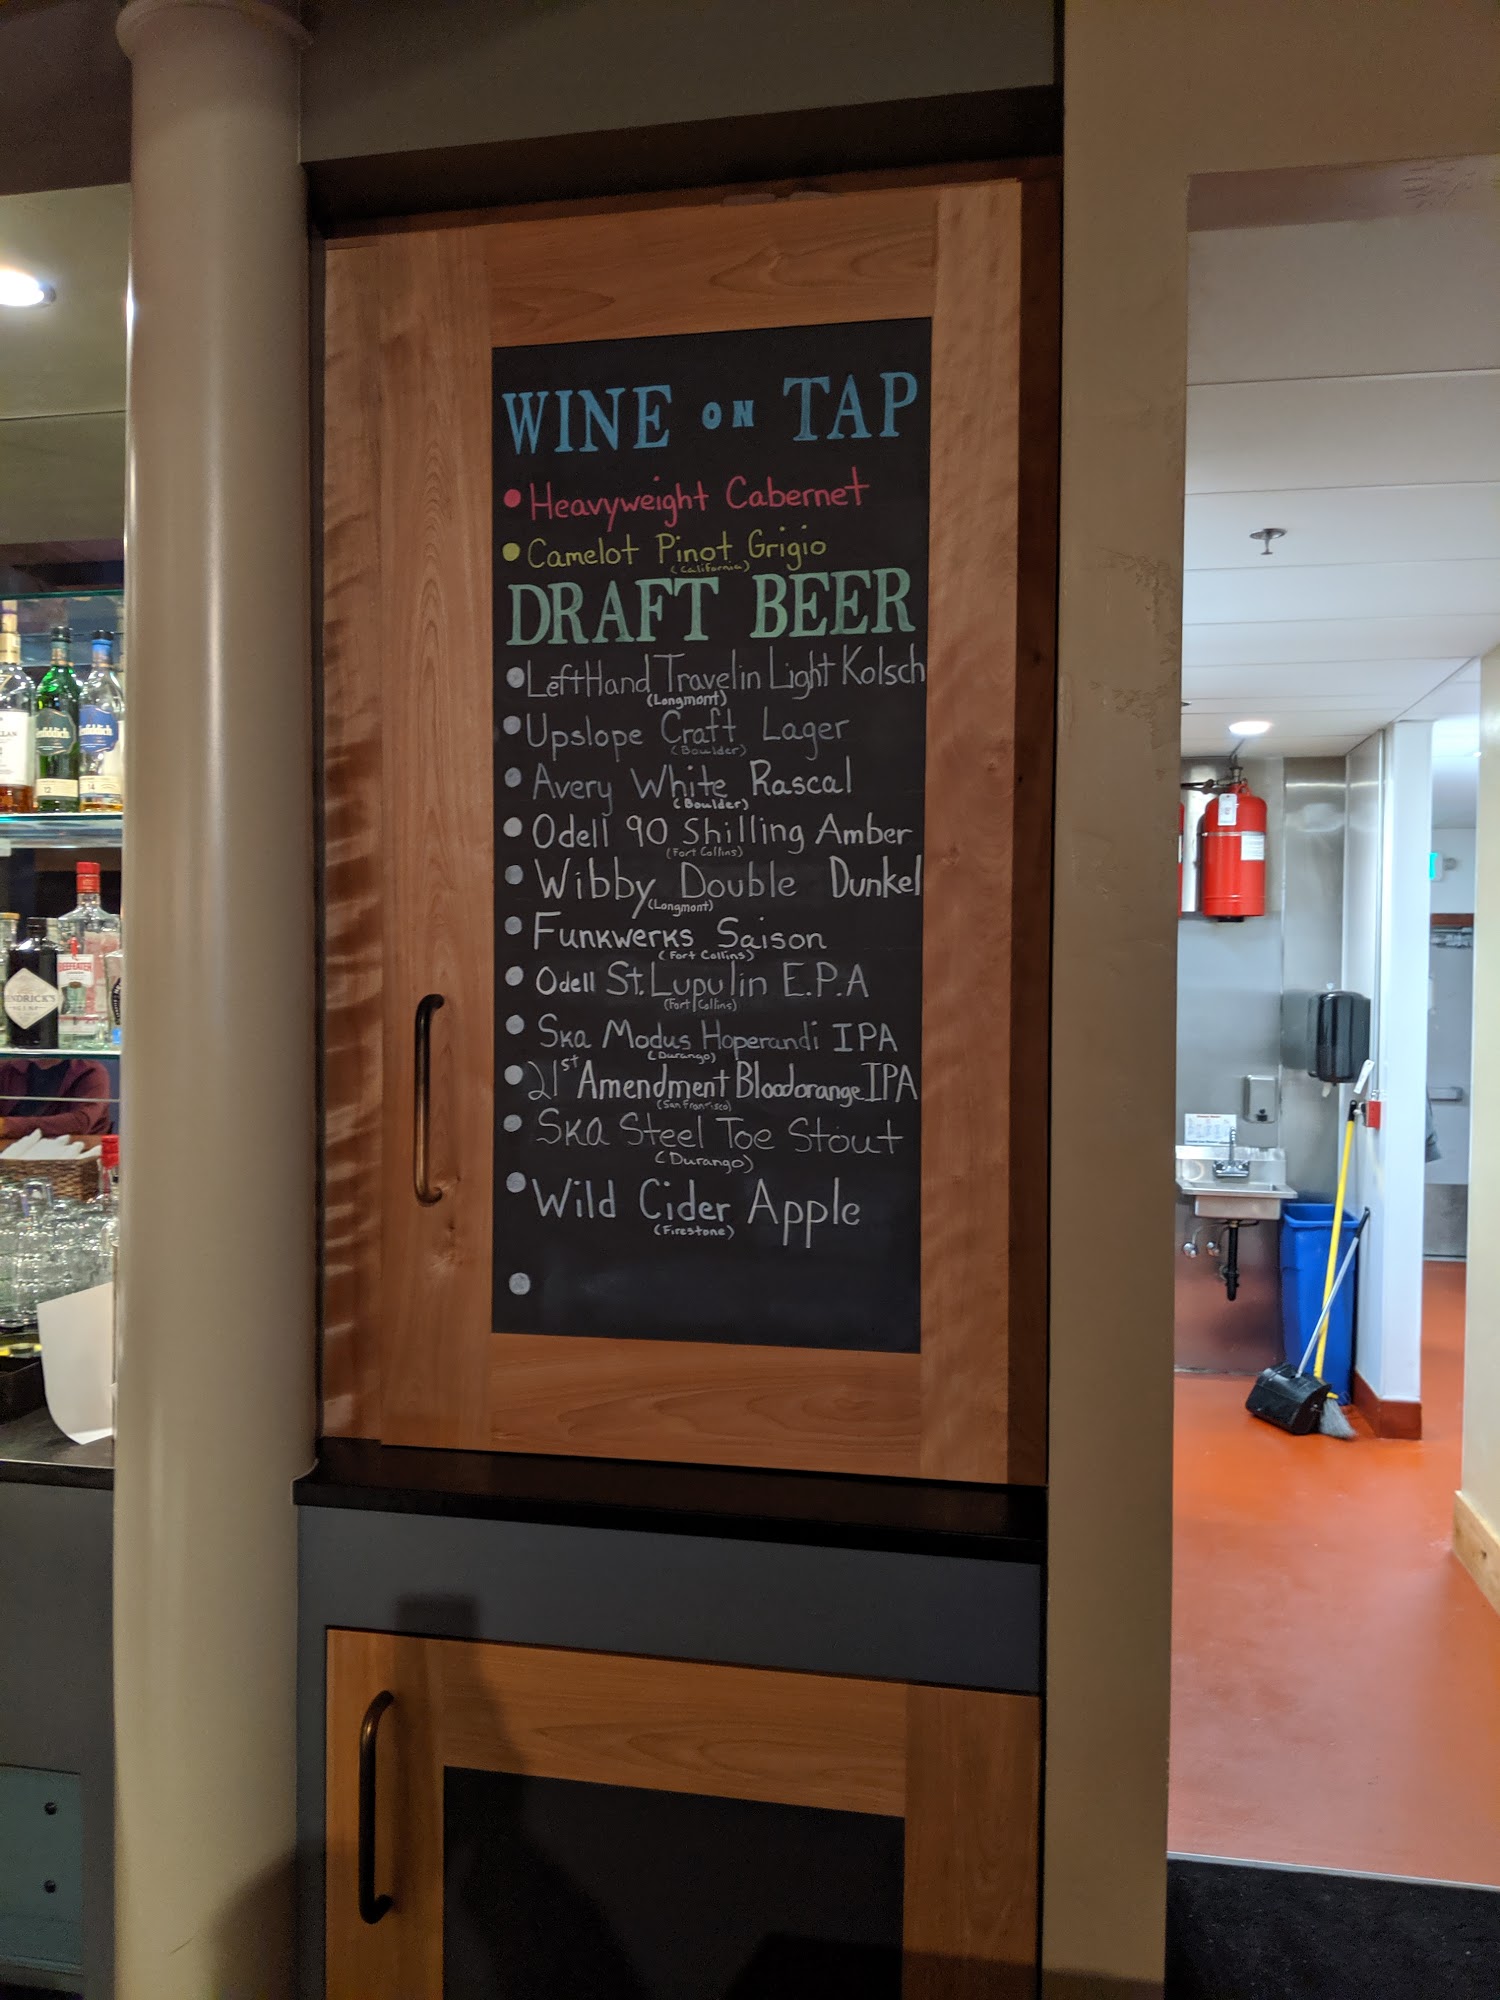 WINE ON TAP
Heavyweight Cabernet
Camelot Pinot Grigio
(California)
DRAFT BEER
Left Hand Travelin Light Kolsch
(Longmont)
Upslope Craft Lager
(Boulder)
Avery White Rascal
(Boulder)
Odell 90 Shilling Amber
(Fort Collins)
Wibby Double Dunkel
(Longmont)
Funkwerks Saison
(Fort Collins)
Odell St. Lupulin E.P.A
(Fort Collins)
Ska Modus Hoperandi IPA
(Durango)
21st Amendment Bloodorange IPA
(San Francisco)
Ska Steel Toe Stout
(Durango)
Wild Cider Apple
(Firestone)
12
14
BEEFEATER
HENDRICK'S